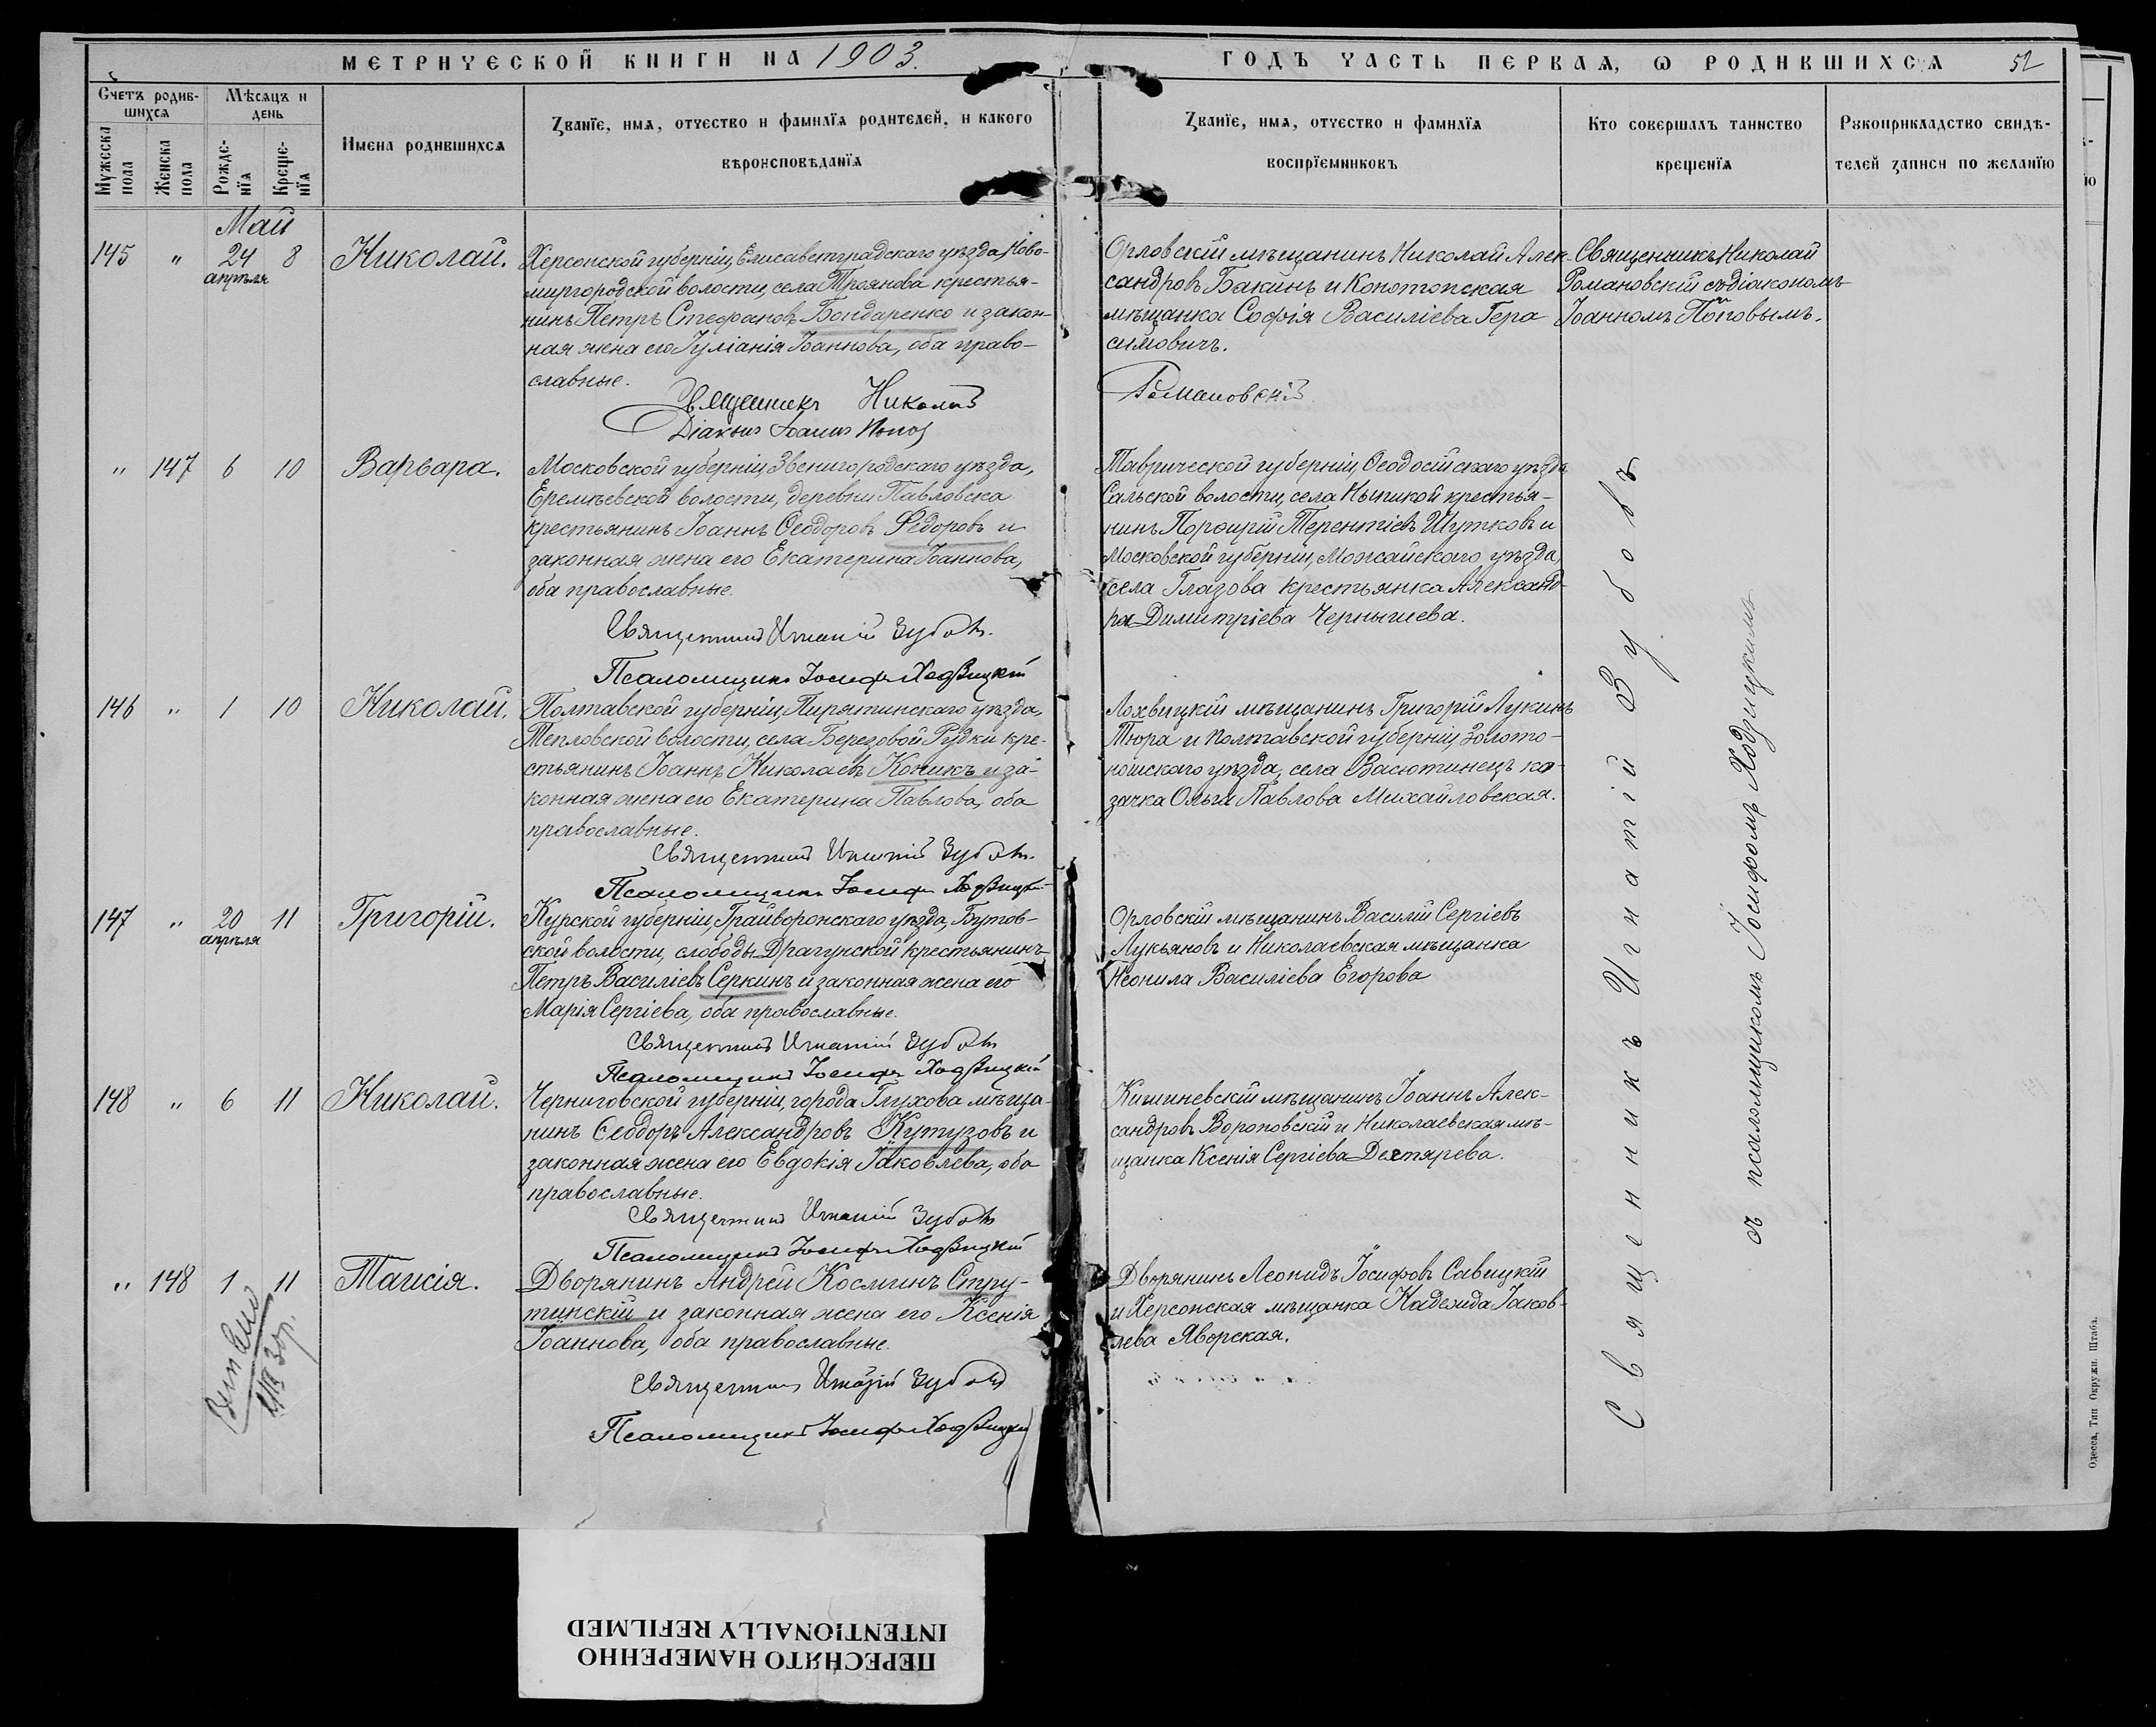 МЕТРИЧЕСКОЙ КНИГИ НА 1903.
ГОДЪ ЧАСТЬ ПЕРВАЯ, Ѡ РОДИВШИХСЯ
52
Счетъ родив-
шихся
Мѣсяцъ и
день
Мужеска
пола
Женска
пола
Рожде-
нїя
Креще-
нїя
Имена родившихся
Званїе, имя, отчество и фамилїя родителей, и какого
вѣроисповѣданїя
Званїе, имя, отчество и фамилїя
воспрїемниковъ
Кто совершалъ таинство
крещенїя
Рукоприкладство свидѣ-
телей записи по желанїю
Май
145 " 24 апрѣля 8 Николай.
Херсонской губерніи, Елисаветградскаго уѣзда, Ново-
миргородской волости, села Троянова крестья-
нинъ Петръ Стефановъ Бондаренко и закон-
ная жена его Іуліанія Іоаннова, оба право-
славные.
Священникъ Николай
Діаконъ Іоаннъ Попов
Орловскій мѣщанинъ Николай Алек-
сандровъ Бакинъ и Конотопская
мѣщанка Софія Василіева Гера
симовичъ.
Романовскій
Священникъ Николай
Романовскій съ діакономъ
Іоанномъ Поповымъ.
" 147 6 10 Варвара.
Московской губерніи, Звенигородскаго уѣзда,
Еремѣевской волости, деревни Павловска
крестьянинъ Іоаннъ Ѳеодоровъ Ѳедоровъ и
законная жена его Екатерина Іоаннова,
оба православные.
Священникъ Игнатій Зубовъ.
Псаломщикъ Іосифъ Ходзицкій
Таврической губерніи, Ѳеодосійскаго уѣзда
Сальской волости, села крестья-
нинъ Порфирій Терентіевъ Шутковъ и
Московской губерніи, Можайскаго уѣзда,
села Глазова крестьянка Александ-
ра Димитріева Чернышева.
146 " 1 10 Николай.
Полтавской губерніи, Пирятинскаго уѣзда,
Тепловской волости, села Березовой Рудки кре-
стьянинъ Іоаннъ Николаевъ Коникъ и за-
конная жена его Екатерина Павлова, оба
православные.
Священникъ Игнатій Зубовъ.
Псаломщикъ Іосифъ Ходзицкій
Лохвицкій мѣщанинъ Григорій Лукинъ
Тюра и Полтавской губерніи, Золото-
ношскаго уѣзда, села Васютинецъ ка-
зачка Ольга Павлова Михайловская.
147 " 20 апрѣля 11 Григорій.
Курской губерніи, Грайворонскаго уѣзда, Бутов-
ской волости, слободы Драгунской крестьянинъ
Петръ Василіевъ Серкинъ и законная жена его
Марія Сергіева, оба православные.
Священникъ Игнатій Зубовъ
Псаломщикъ Іосифъ Ходзицкій
Орловскій мѣщанинъ Василій Сергіевъ
Лукьяновъ и Николаевская мѣщанка
Неонила Василіева Егорова
148 " 6 11 Николай.
Черниговской губерніи, города Глухова мѣща-
нинъ Ѳеодоръ Александровъ Кутузовъ и
законная жена его Евдокія Іаковлева, оба
православные.
Священникъ Игнатій Зубовъ
Псаломщикъ Іосифъ Ходзицкій
Кишиневскій мѣщанинъ Іоаннъ Алек-
сандровъ Вороновскій и Николаевская мѣ-
щанка Ксенія Сергіева Дехтярева.
" 148 1 11 Таисія.
Дворянинъ Андрей Косминъ Стру-
тинскій и законная жена его Ксенія
Іоаннова, оба православные.
Священникъ Игнатій Зубовъ
Псаломщикъ Іосифъ Ходзицкій
Дворянинъ Леонидъ Іосифовъ Савицкій
и Херсонская мѣщанка Надежда Іаков-
лева Яворская.
Священникъ Игнатій Зубовъ
съ псаломщикомъ Іосифомъ Ходзицкимъ
Одесса, Тип Окружн. Штаба.
ПЕРЕСНЯТО НАМЕРЕННО
INTENTIONALLY REFILMED